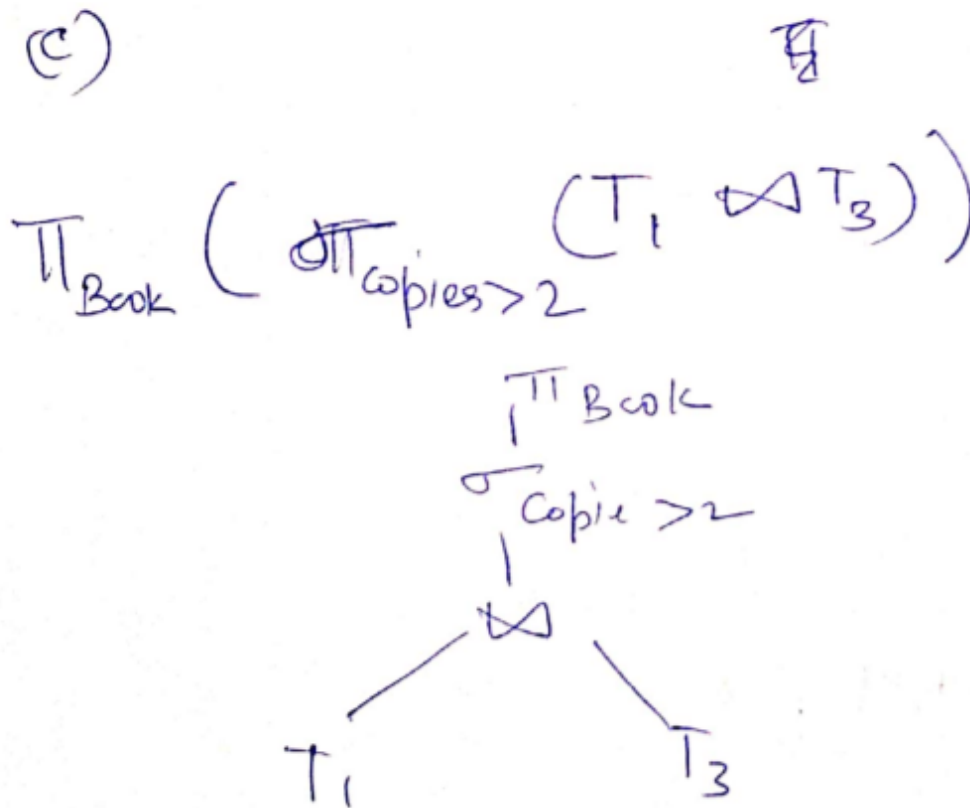 (C)
π Book ( σ copies>2 (T1 ⋈ T3))
π Book
σ Copie >2
⋈
T1 T3